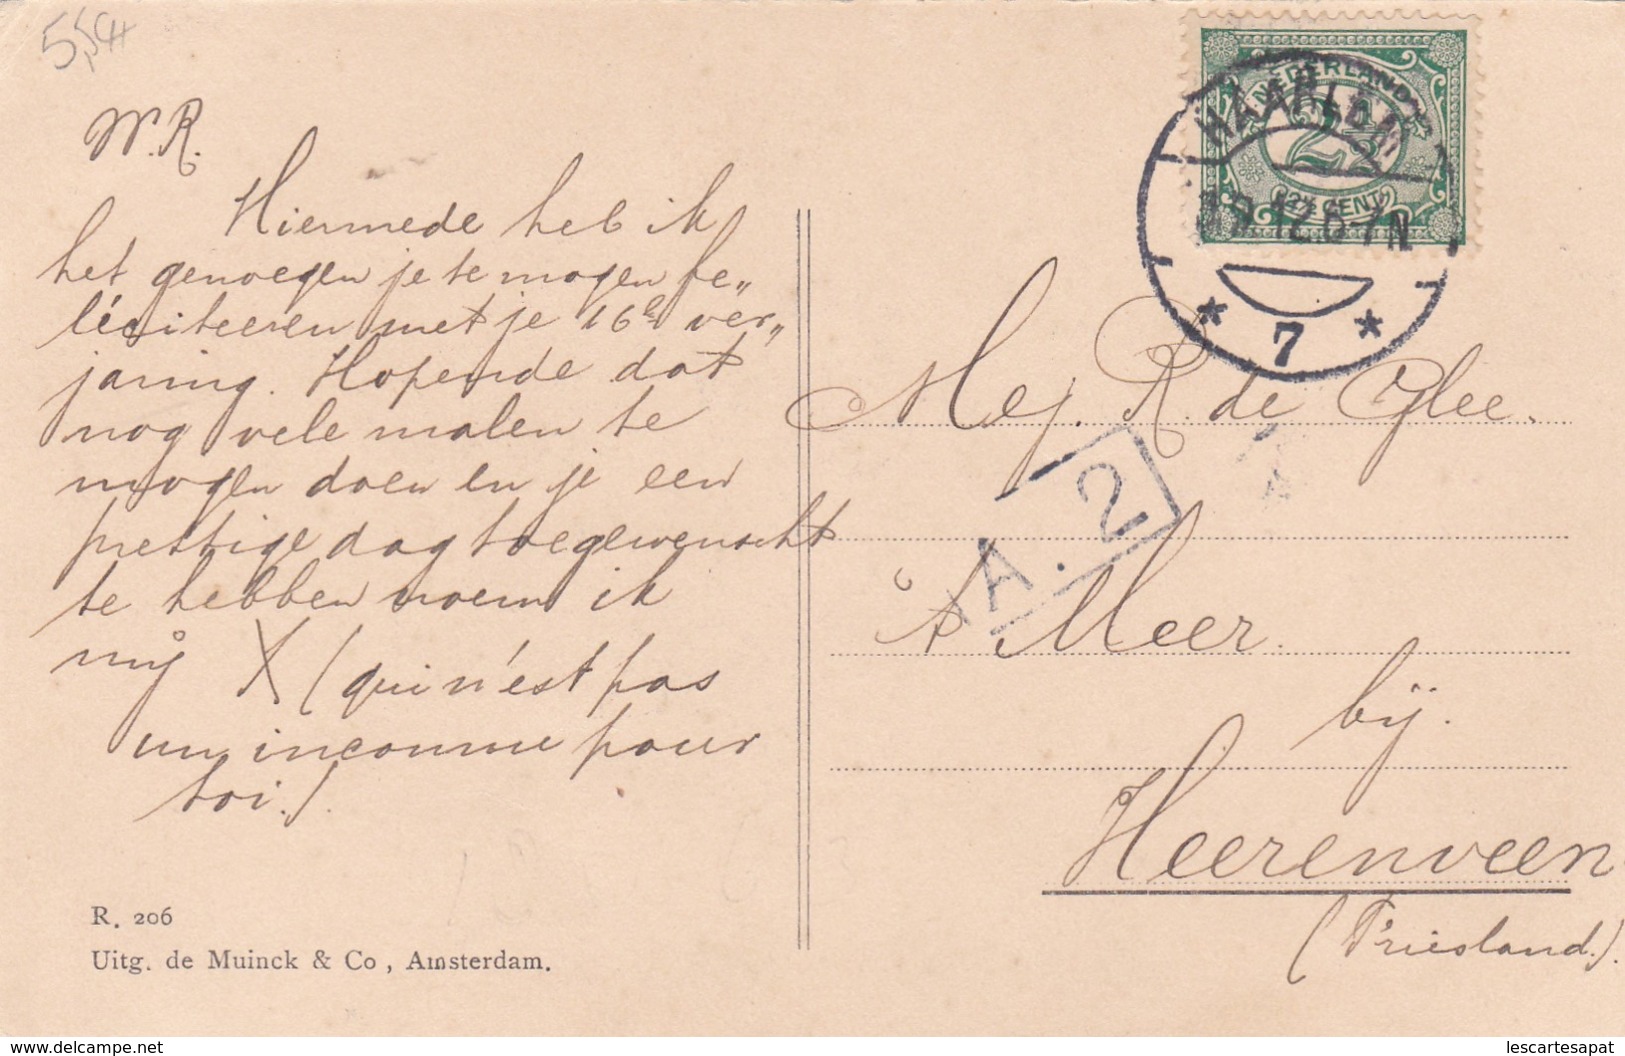 W.R.
Hiermede heb ik
het genoegen je te mogen fe„
liciteeren met je 16e ver„
jaring. Hopende dat
nog vele malen te
mogen doen en je een
prettige dag toegewenscht
te hebben noem ik
mij X (qui n'est pas
un inconnu pour
toi.).
R. 206
Uitg. de Muinck & Co, Amsterdam.
NEDERLAND
2½
2½ CENT
HAARLEM
12.6-7N
* 7 *
Mej. R. de Glee.
A. 2
't Meer.
bij.
Heerenveen
(Friesland.).
lescartesapat